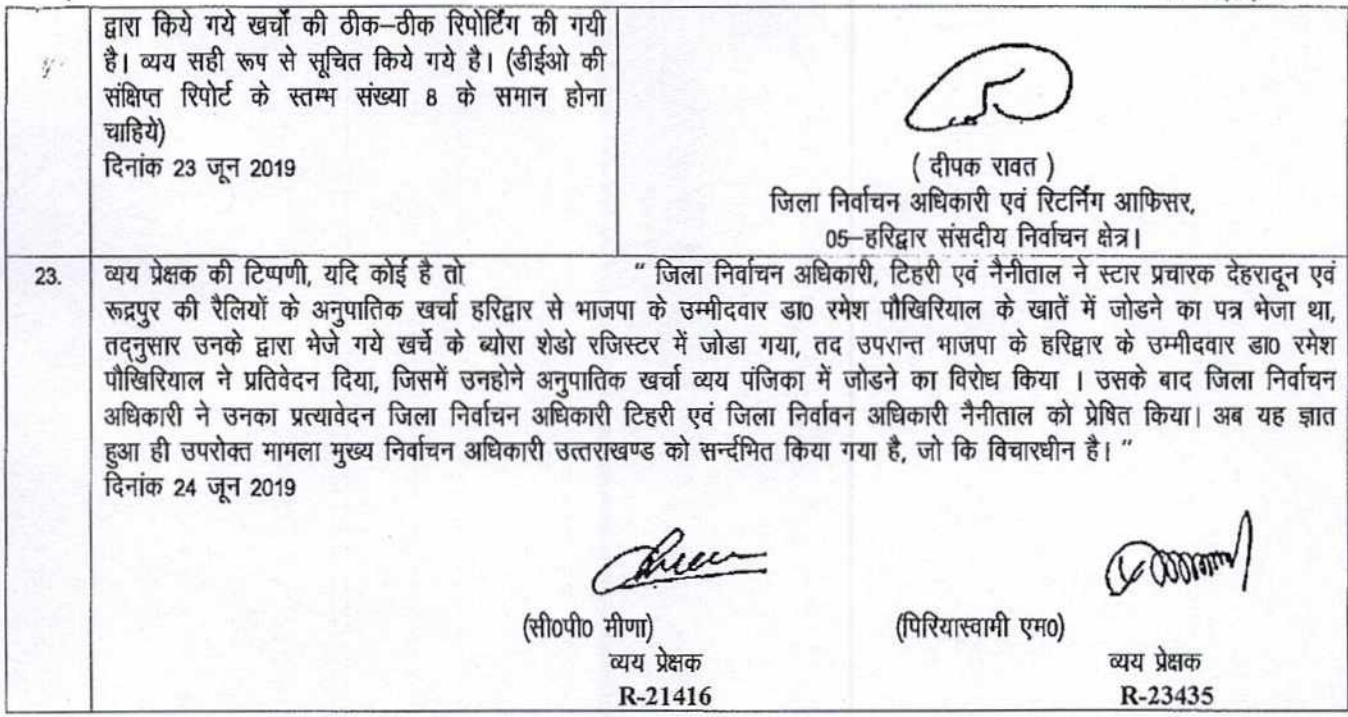 द्वारा किये गये खर्चो की ठीक–ठीक रिपोर्टिंग की गयी
है। व्यय सही रूप से सूचित किये गये है। (डीईओ की
संक्षिप्त रिपोर्ट के स्तम्भ संख्या 8 के समान होना
चाहिये)
दिनांक 23 जून 2019
( दीपक रावत )
जिला निर्वाचन अधिकारी एवं रिटर्निंग आफिसर,
05–हरिद्वार संसदीय निर्वाचन क्षेत्र।
23. व्यय प्रेक्षक की टिप्पणी, यदि कोई है तो " जिला निर्वाचन अधिकारी, टिहरी एवं नैनीताल ने स्टार प्रचारक देहरादून एवं
रूद्रपुर की रैलियों के अनुपातिक खर्चा हरिद्वार से भाजपा के उम्मीदवार डा0 रमेश पौखिरियाल के खातें में जोडने का पत्र भेजा था,
तद्नुसार उनके द्वारा भेजे गये खर्चे के ब्योरा शेडो रजिस्टर में जोडा गया, तद उपरान्त भाजपा के हरिद्वार के उम्मीदवार डा0 रमेश
पौखिरियाल ने प्रतिवेदन दिया, जिसमें उनहोने अनुपातिक खर्चा व्यय पंजिका में जोडने का विरोध किया । उसके बाद जिला निर्वाचन
अधिकारी ने उनका प्रत्यावेदन जिला निर्वाचन अधिकारी टिहरी एवं जिला निर्वावन अधिकारी नैनीताल को प्रेषित किया। अब यह ज्ञात
हुआ ही उपरोक्त मामला मुख्य निर्वाचन अधिकारी उत्तराखण्ड को सर्न्दभित किया गया है, जो कि विचारधीन है। "
दिनांक 24 जून 2019
(सी0पी0 मीणा) (पिरियास्वामी एम0)
व्यय प्रेक्षक व्यय प्रेक्षक
R-21416 R-23435